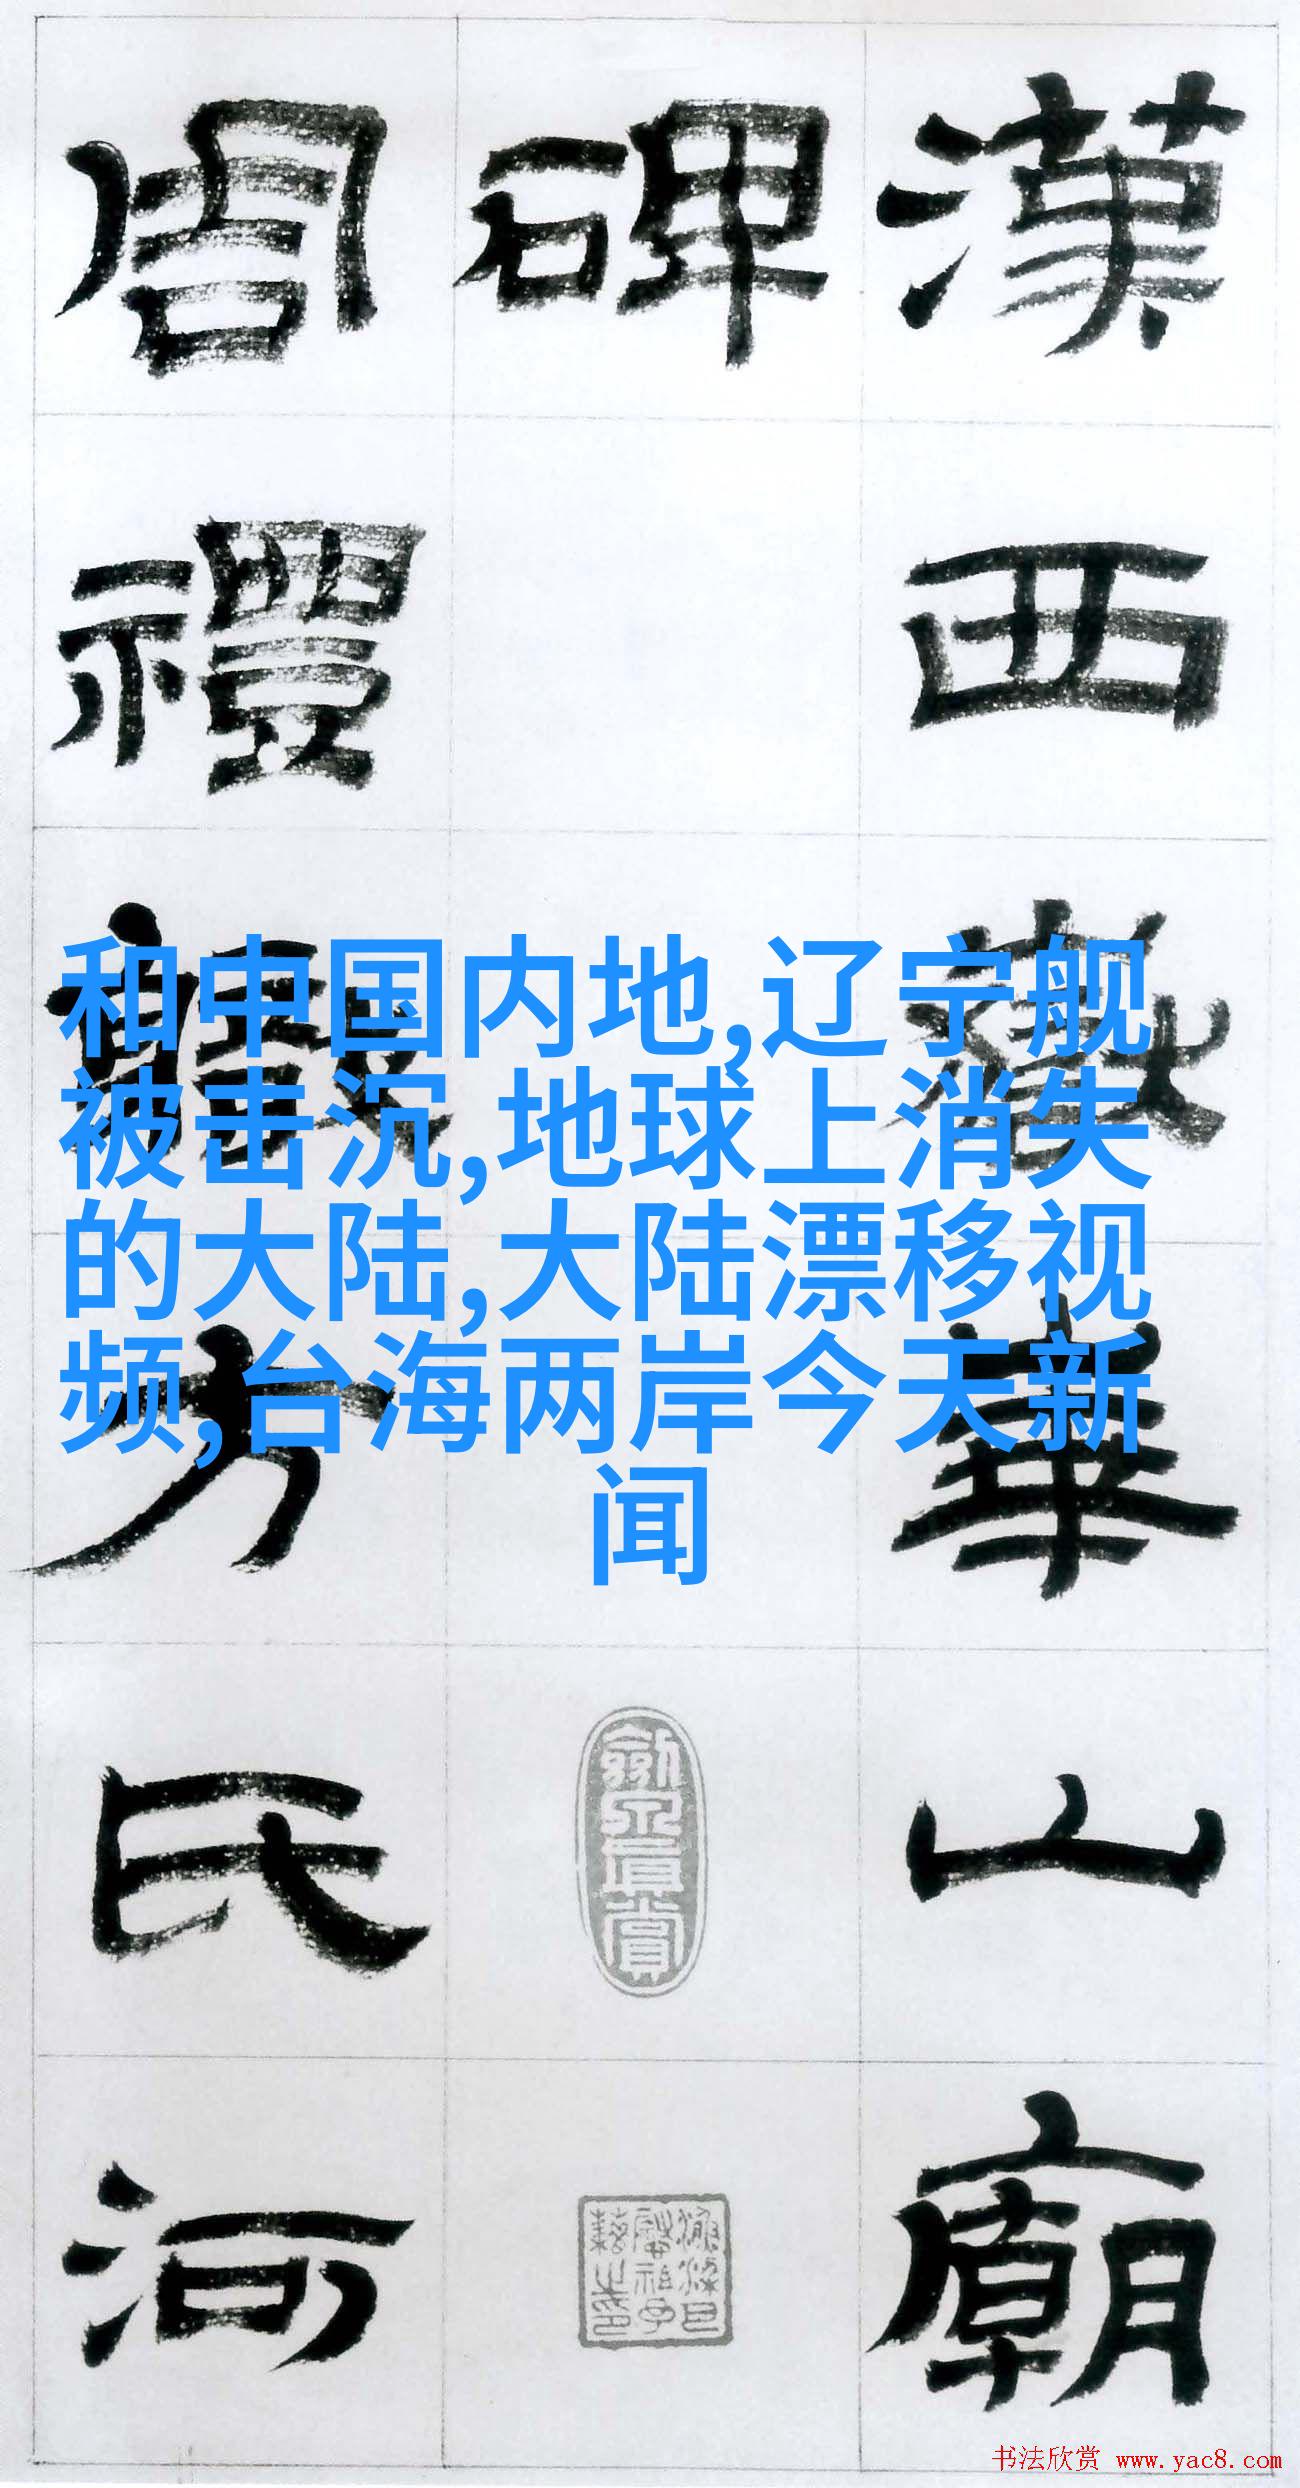 漢西嶽華山廟
碑
周禮職方氏河
和中国内地,辽宁舰
被击沉,地球上消失
的大陆,大陆漂移视
频,台海两岸今天新
闻
书法欣赏 www.yac8.com